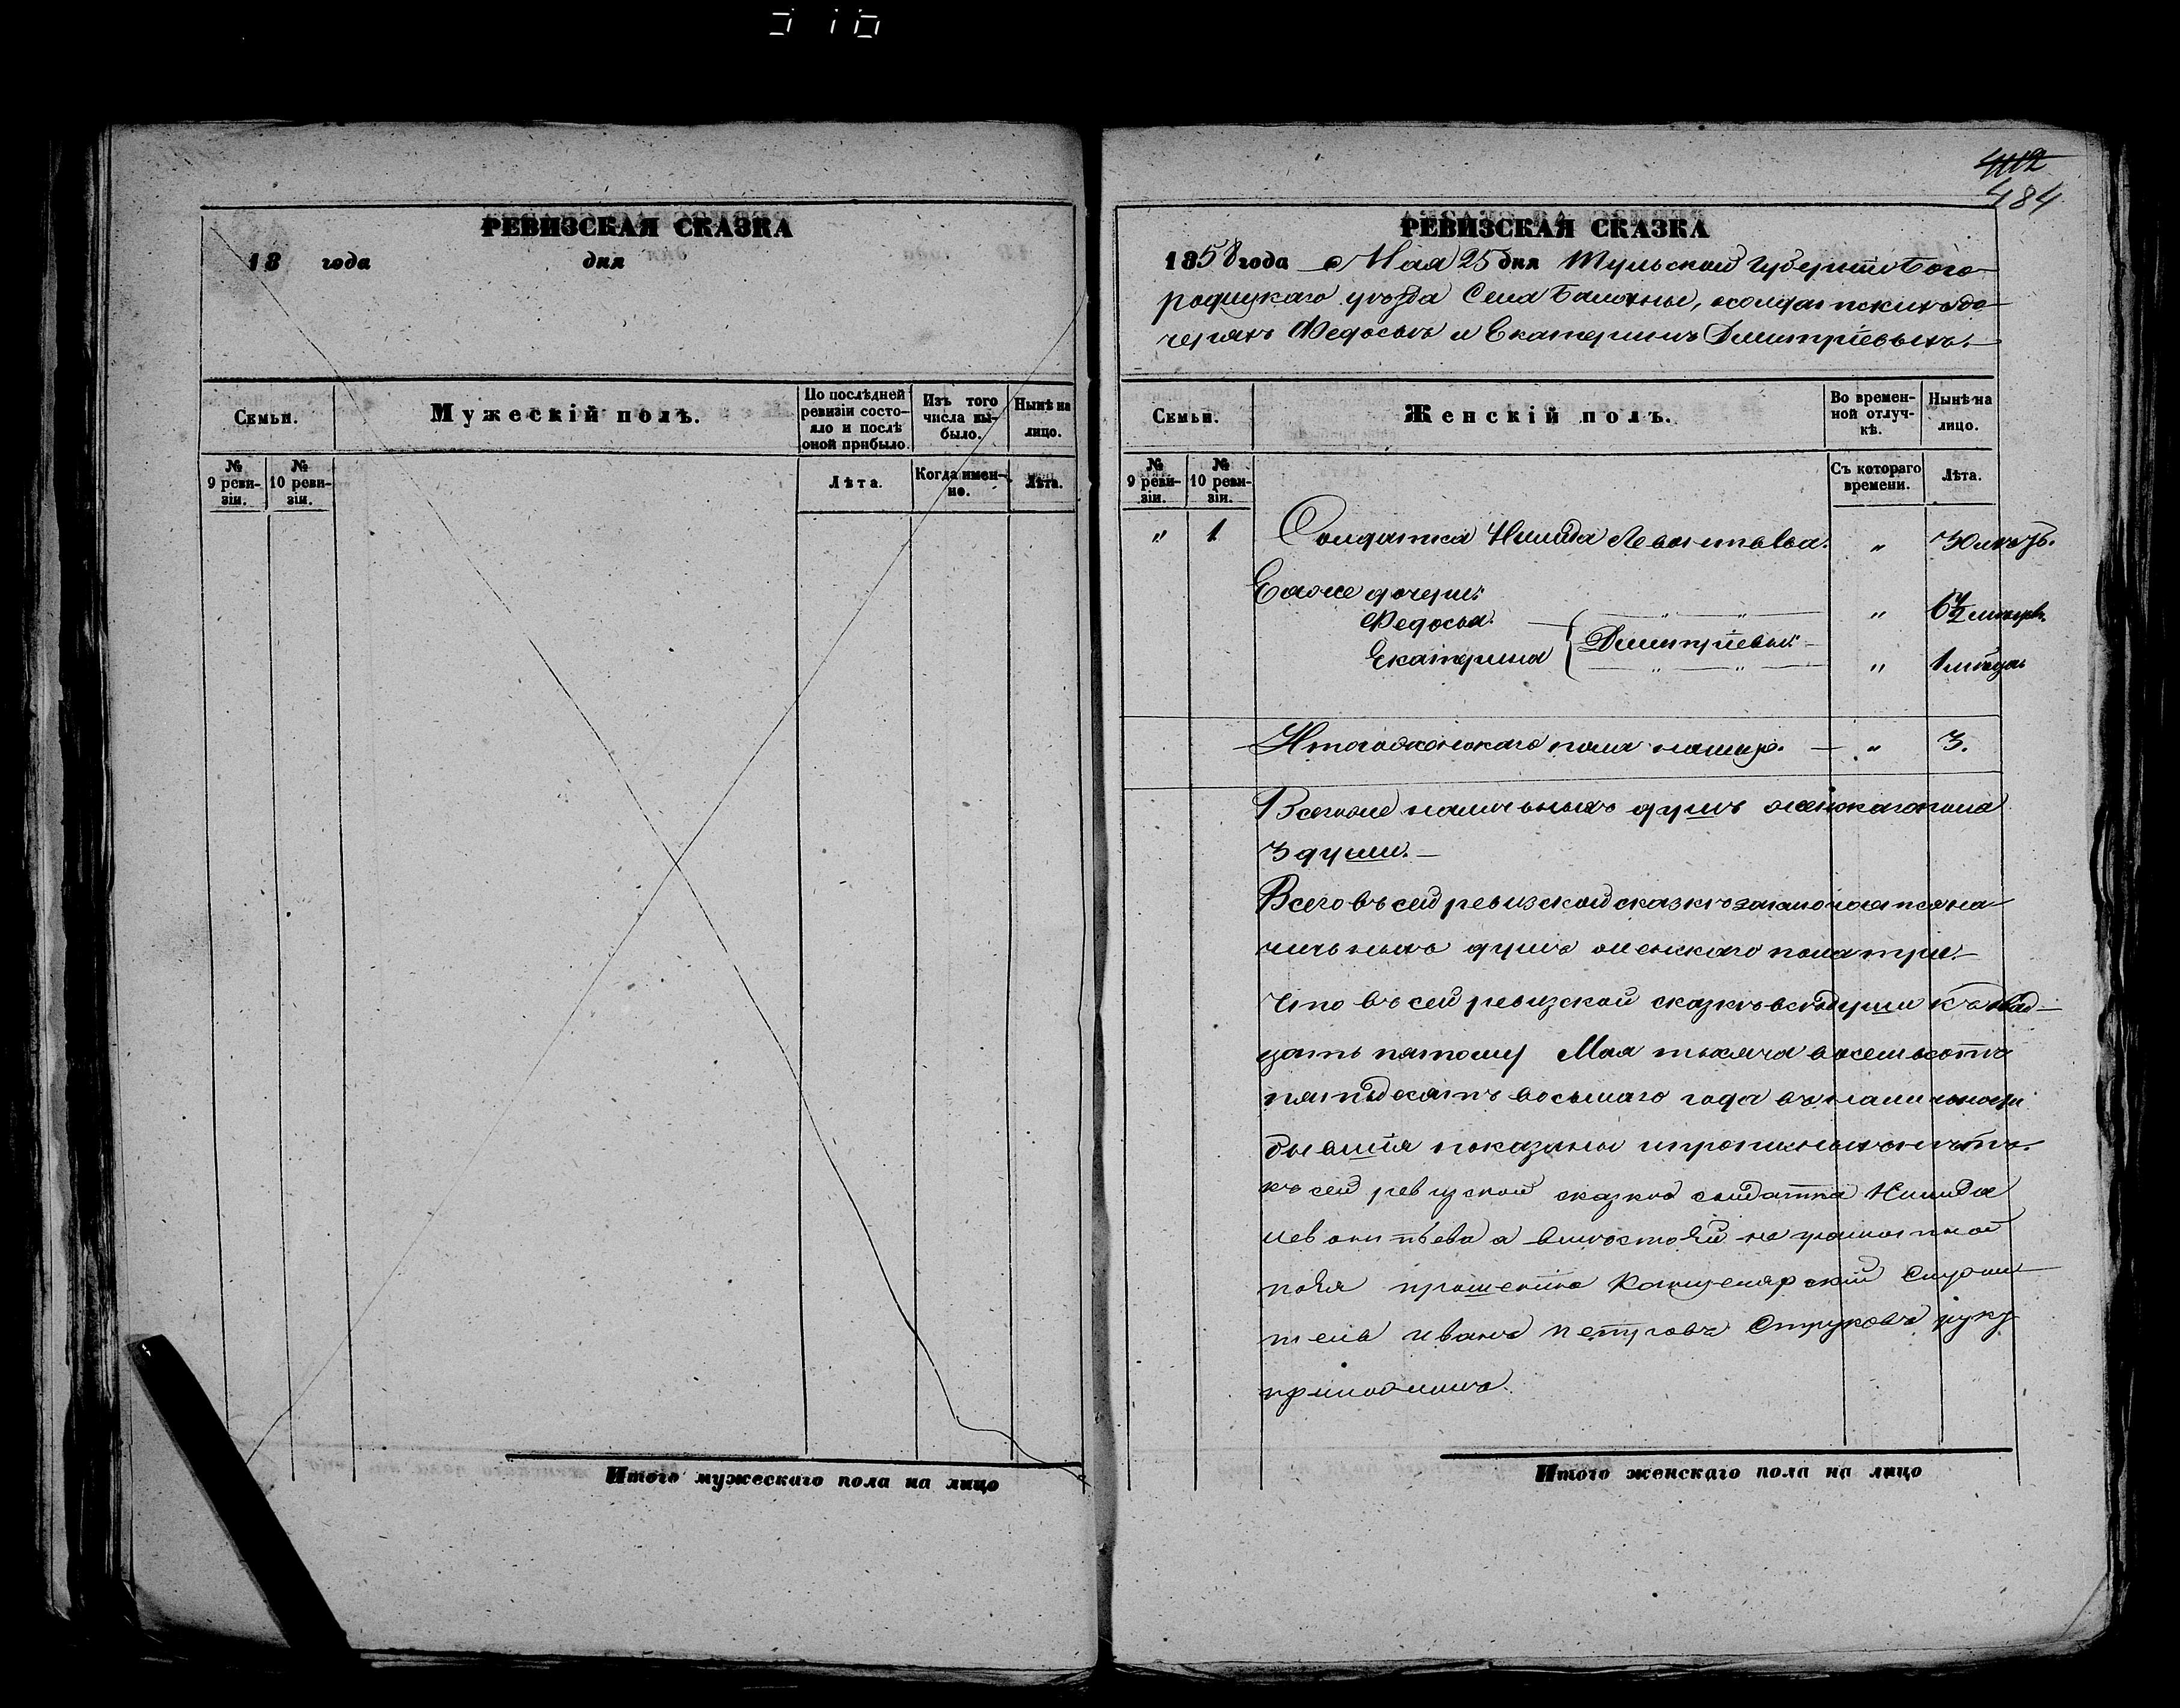 РЕВИЗСКАЯ СКАЗКА
18 года дня
Семьи.
Мужескій полъ.
По послѣдней ревизіи состояло и послѣ оной прибыло.
Изъ того числа выбыло.
Нынѣ на лицо.
№ 9 ревизіи.
№ 10 ревизіи.
Лѣта.
Когда именно.
Лѣта.
Итого мужескаго пола на лицо
412
484
РЕВИЗСКАЯ СКАЗКА
1858 года Мая 25 дня Тульской Губерніи Бого-
родицкаго уѣзда Села, о солдатскихъ до-
черяхъ Федосьѣ и Екатеринѣ Дмитріевыхъ.
Семьи.
Женскій полъ.
Во временной отлучкѣ.
Нынѣ на лицо.
№ 9 ревизіи.
№ 10 ревизіи.
Съ котораго времени.
Лѣта.
" 1 Солдатка Левонтьева. " 30
Ея же дочери:
Федосья " 6½
Дмитріевы
Екатерина " 1
Итого женскаго пола на лицо. " 3.
Всего же наличныхъ душъ женскаго пола
3 души.
Всего въ сей ревизской сказкѣ заключается на-
личныхъ душъ женскаго пола три.
Что въ сей ревизской сказкѣ всѣ души къ двад-
цать пятому Мая тысяча восемьсотъ
пятьдесятъ восьмаго года въ наличности
бывшія показаны и прописныхъ нѣтъ.
къ сей ревизской сказкѣ солдатка
Левонтьева а вместо ей не грамотной
по ея прошенію Канцелярскій Служи-
тель иванъ петровъ Струковъ руку
приложилъ.
Итого женскаго пола на лицо